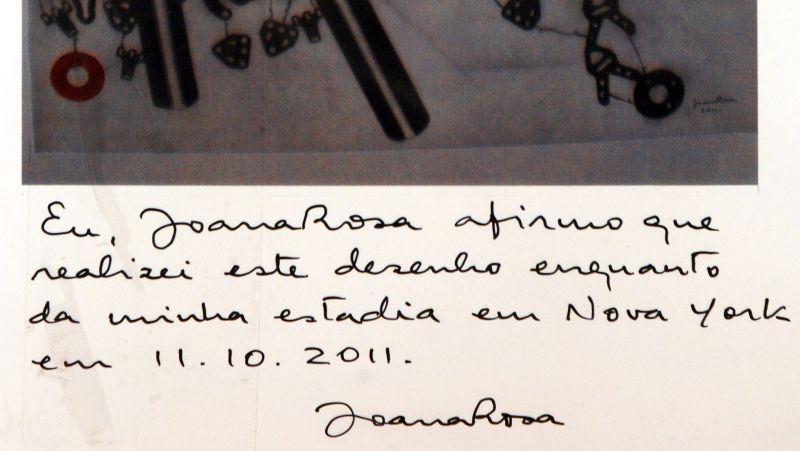 Joana Rosa
2011
Eu, Joana Rosa afirmo que
realizei este desenho enquanto
da minha estadia em Nova York
em 11.10.2011.
Joana Rosa